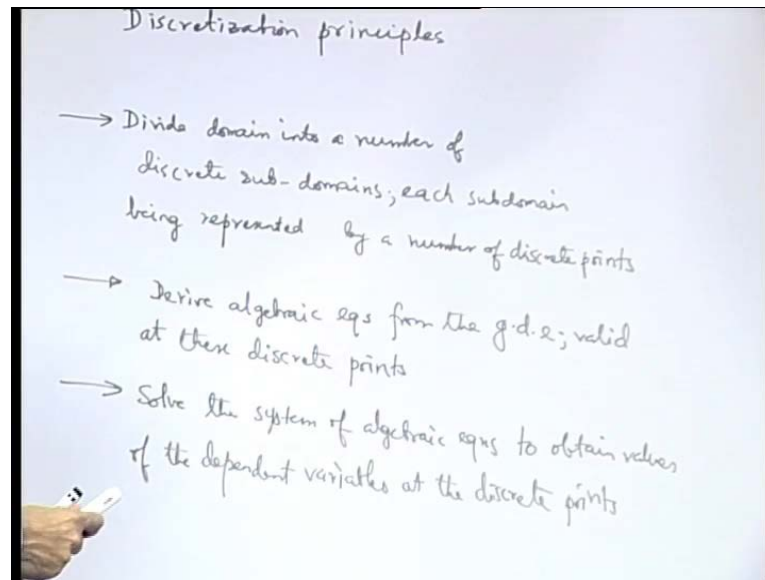 Discretization principles
→ Divide domain into a number of
discrete sub-domains; each subdomain
being represented by a number of discrete points
→ Derive algebraic eqs from the g.d.e; valid
at these discrete points
→ Solve the system of algebraic eqns to obtain values
of the dependent variables at the discrete points